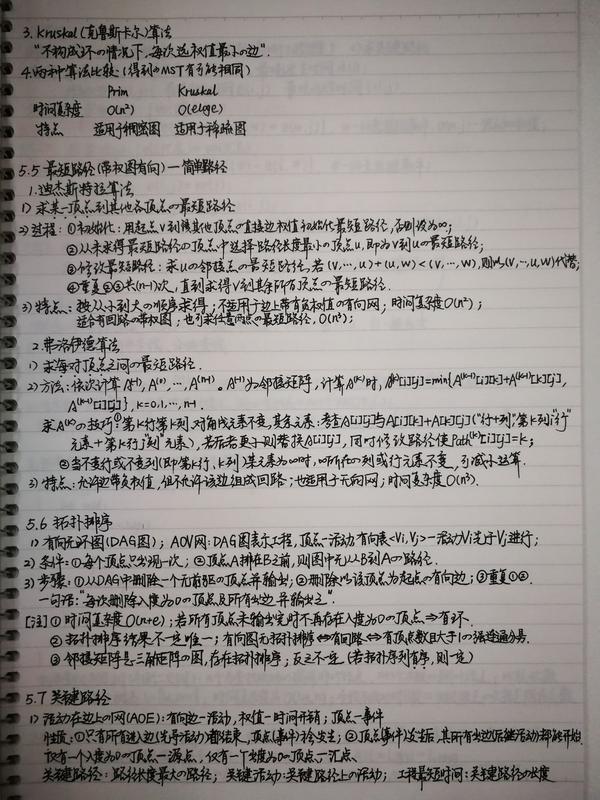 3. Kruskal(克鲁斯卡尔)算法
"不构成环の情况下,每次选权值最小の边".
4.两种算法比较(得到のMST有可能相同)
Prim Kruskal
时间复杂度 O(n²) O(eloge)
特点 适用于稠密图 适用于稀疏图
5.5 最短路径(带权图有向)—简单路径
1.迪杰斯特拉算法
1) 求某一顶点到其他各顶点の最短路径
2) 过程:①初始化:用起点V到该其他顶点の直接边权值初始化最短路径,否则设为∞;
②从未求得最短路径の顶点中选择路径长度最小の顶点u,即为V到uの最短路径;
③修改最短路径:求uの邻接点の最短路径,若(V,…,u)+(u,w)<(V,…,w),则以(V,…,u,w)代替;
④重复②③共(n-1)次,直到求得V到其余所有顶点の最短路径.
3) 特点:按从小到大の顺序求得;不适用于边上带有负权值の有向网;时间复杂度O(n²);
适合有回路の带权图;也可求任意两点の最短路径,O(n³);
2.弗洛伊德算法
1) 求每对顶点之间の最短路径.
2) 方法:依次计算A⁽⁻¹⁾,A⁽⁰⁾,…,A⁽ⁿ⁻¹⁾。A⁽⁻¹⁾为邻接矩阵,计算A⁽ᵏ⁾时,A⁽ᵏ⁾[i][j]=min{A⁽ᵏ⁻¹⁾[i][k]+A⁽ᵏ⁻¹⁾[k][j],
A⁽ᵏ⁻¹⁾[i][j]},k=0,1,…,n-1.
求A⁽ᵏ⁾の技巧①第k行第k列、对角线元素不变,其余元素:考查A[i][j]与A[i][k]+A[k][j]("行+列",第k列"i行"
元素+第k行"j列"元素),若后者更小则替换A[i][j],同时修改路径使Path⁽ᵏ⁾[i][j]=k;
②当不变行或不变列(即第k行、k列)某元素为∞时,∞所在の列或行元素不变,可减小运算.
3) 特点:允许边带负权值,但不允许该边组成回路;也适用于无向网;时间复杂度O(n³).
5.6 拓扑排序
1) 有向无环图(DAG图);AOV网:DAG图表示工程,顶点—活动有向表<Vi,Vj>—活动Vi先于Vj进行;
2) 条件:①每个顶点只出现一次;②顶点A排在B之前,则图中无从B到Aの路径.
3) 步骤:①从DAG中删除一个无前驱の顶点并输出;②删除以该顶点为起点の有向边;③重复①②.
一句话:"每次删除入度为0の顶点及所有出边并输出之".
[注]①时间复杂度O(n+e);若所有顶点未输出完时不再存在入度为0の顶点⇒有环.
②拓扑排序结果不一定唯一;有向图无拓扑排序⇔有回路⇔有顶点数目大于1の强连通分量.
③邻接矩阵是三角矩阵の图,存在拓扑排序;反之不一定(若拓扑序列有序,则一定)
5.7 关键路径
1) 活动在边上の网(AOE):有向边—活动,权值—时间开销;顶点—事件
性质:①只有所有进入边(先导活动)都结束,顶点(事件)将发生;②顶点(事件)发生后,其所有出边后继活动都能开始.
仅有一个入度为0の顶点—源点,仅有一个出度为0の顶点—汇点.
关键路径:路径长度最大の路径;关键活动:关键路径上の活动;工程最短时间:关键路径の长度